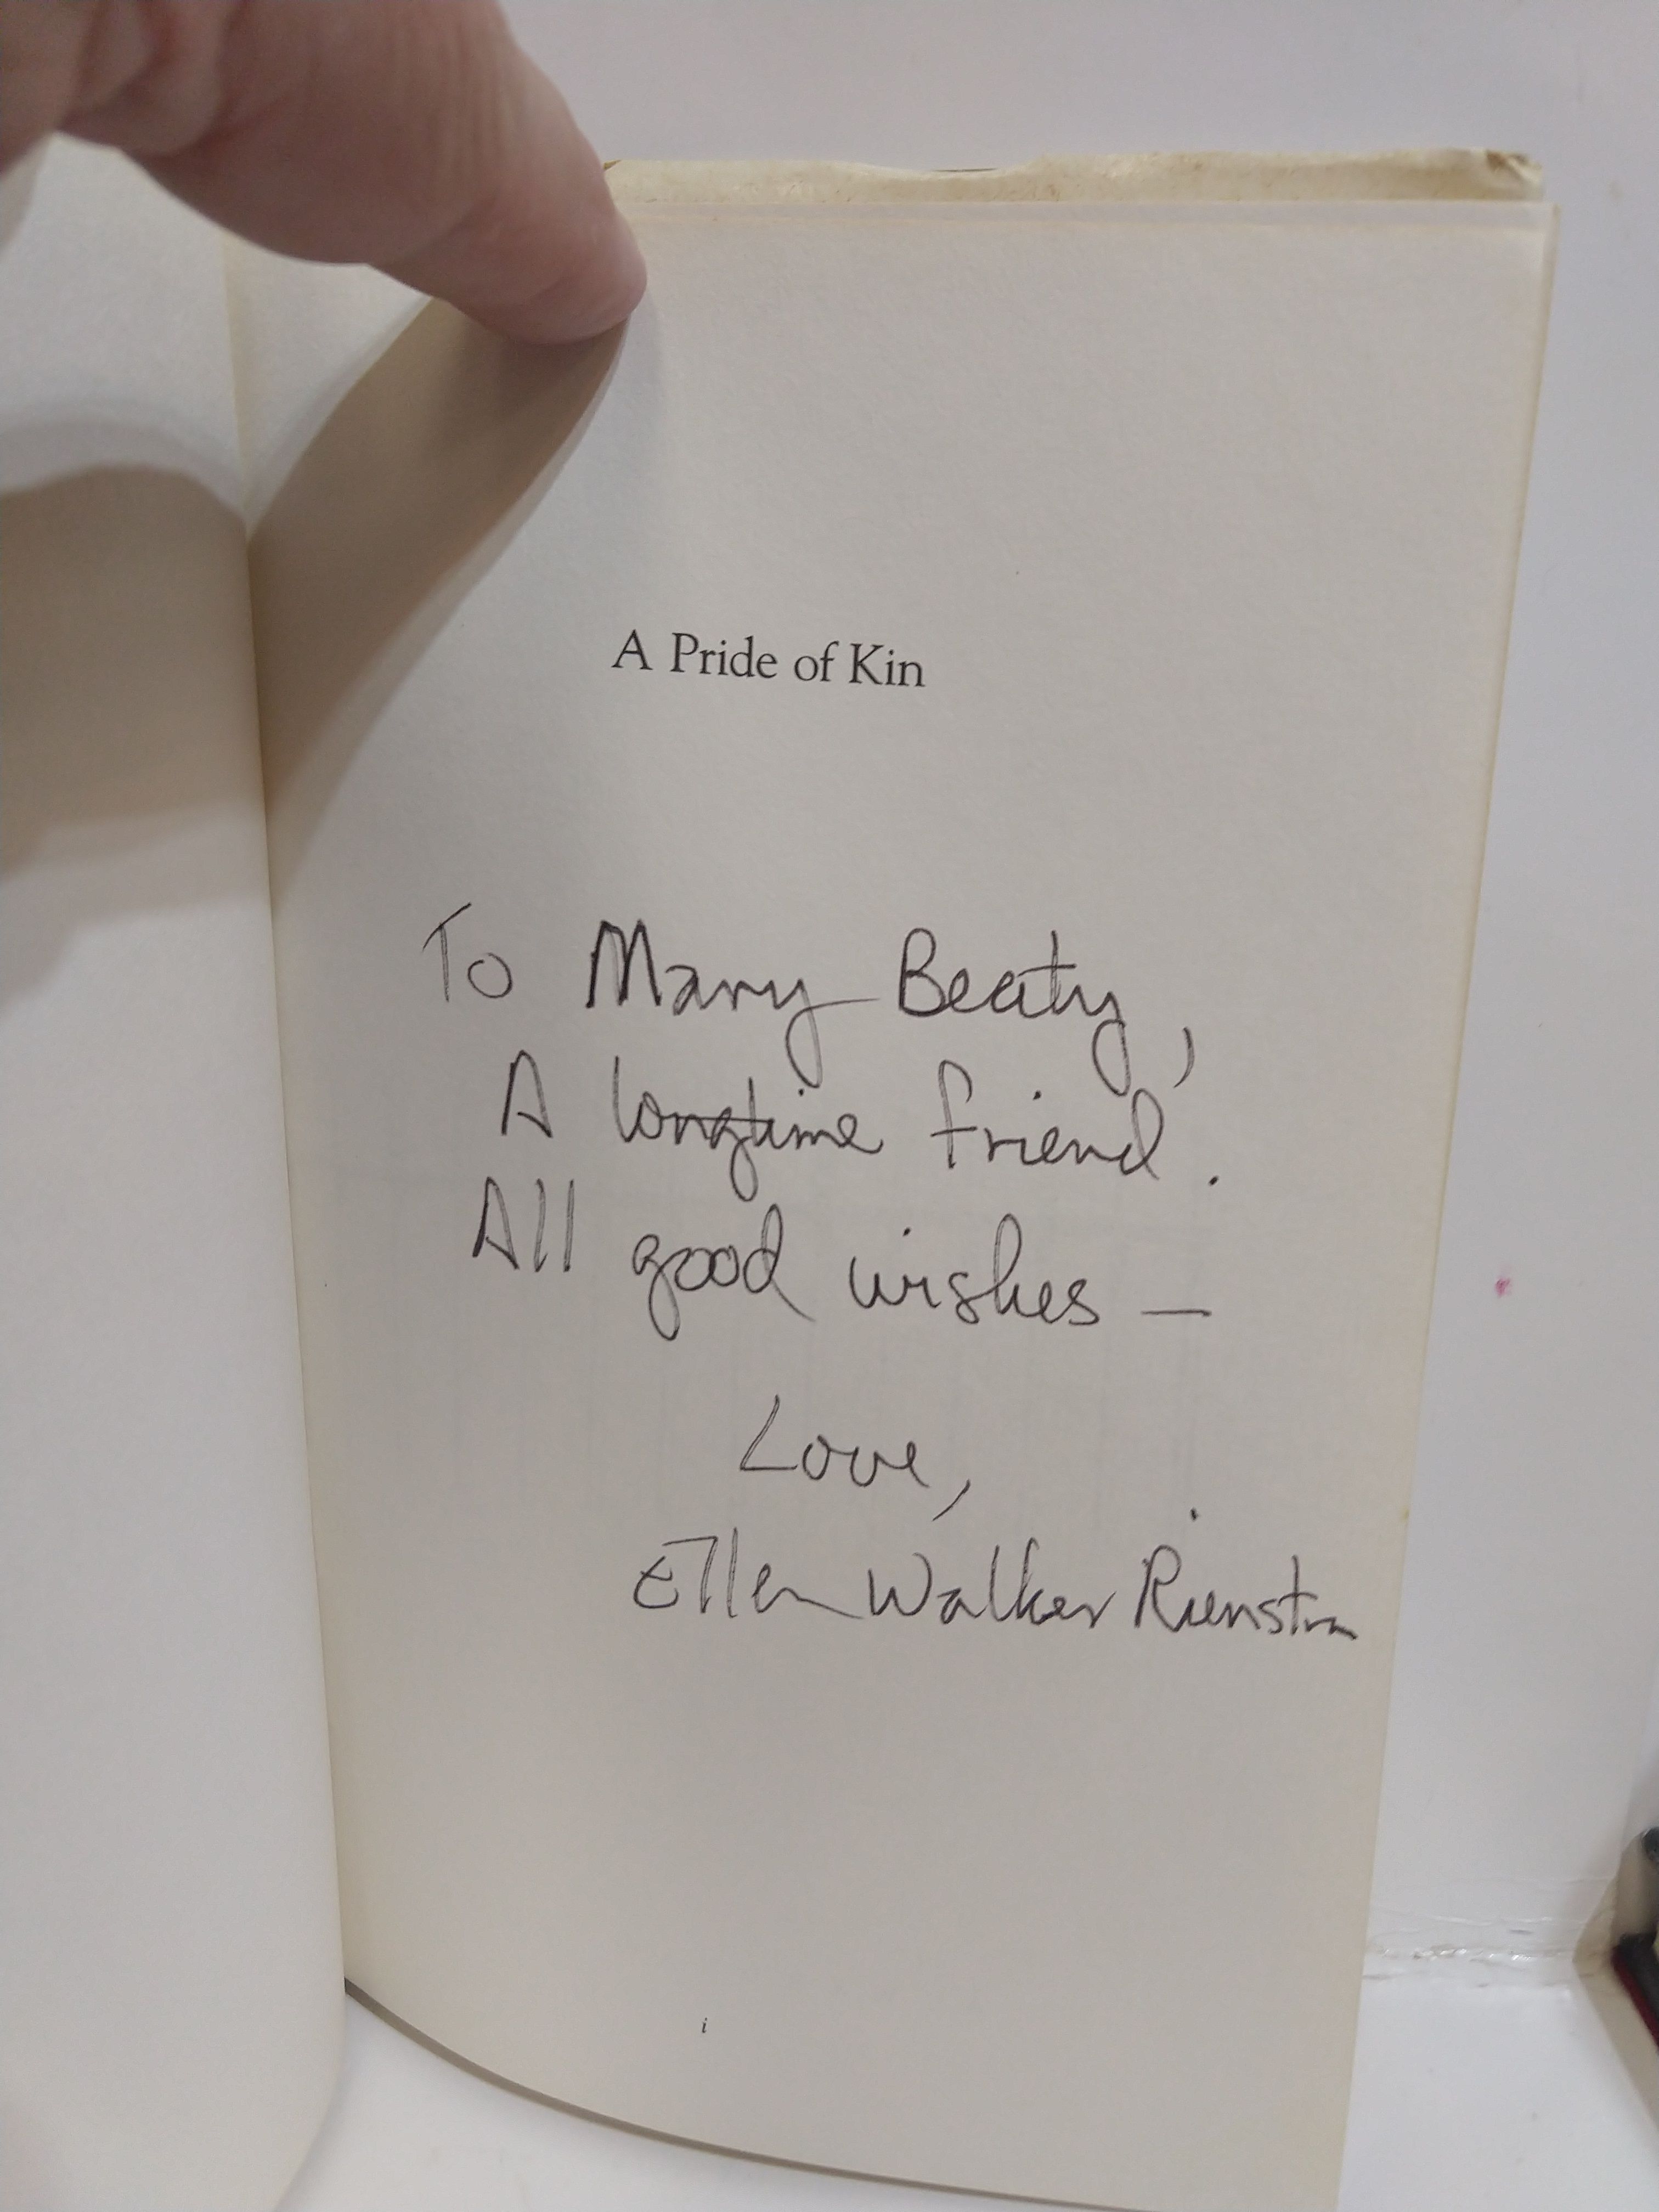 A Pride of Kin
To Mary Beaty,
A longtime friend.
All good wishes —
Love,
Ellen Walker Rienstra
i